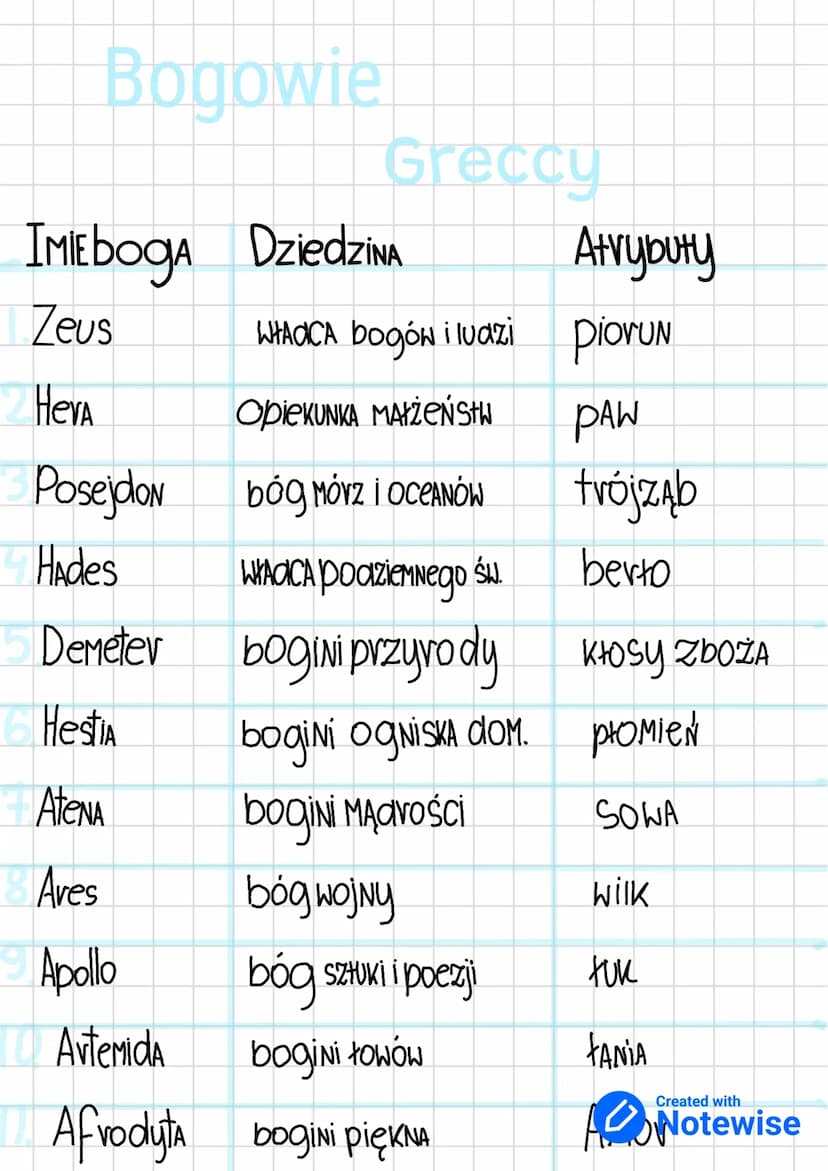 Bogowie
Greccy
Imie boga Dziedzina Atrybuty
1. Zeus władca bogów i ludzi piorun
2 Hera opiekunka małżeństw paw
3 Posejdon bóg mórz i oceanów trójząb
4 Hades władca podziemnego św. berło
5 Demeter bogini przyrody kłosy zboża
6 Hestia bogini ogniska dom. płomień
7 Atena bogini mądrości sowa
8 Ares bóg wojny wilk
9 Apollo bóg sztuki i poezji łuk
10 Artemida bogini łowów łania
11. Afrodyta bogini piękna
Created with
Notewise